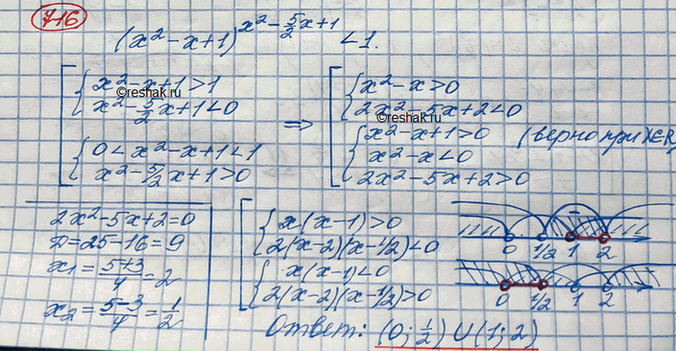 716
(x² - x + 1)^(x² - 5/2 x + 1) < 1.
[ { x² - x + 1 > 1
x² - 5/2 x + 1 < 0
{ 0 < x² - x + 1 < 1
x² - 5/2 x + 1 > 0
⇒ [ { x² - x > 0
2x² - 5x + 2 < 0
{ x² - x + 1 > 0 (верно при x∈R)
x² - x < 0
2x² - 5x + 2 > 0
©reshak.ru
©reshak.ru
2x² - 5x + 2 = 0
D = 25 - 16 = 9
x₁ = (5+3)/4 = 2
x₂ = (5-3)/4 = 1/2
[ { x(x-1) > 0
2(x-2)(x-1/2) < 0
{ x(x-1) < 0
2(x-2)(x-1/2) > 0
0 1/2 1 2
0 1/2 1 2
Ответ: (0; 1/2) ∪ (1; 2)